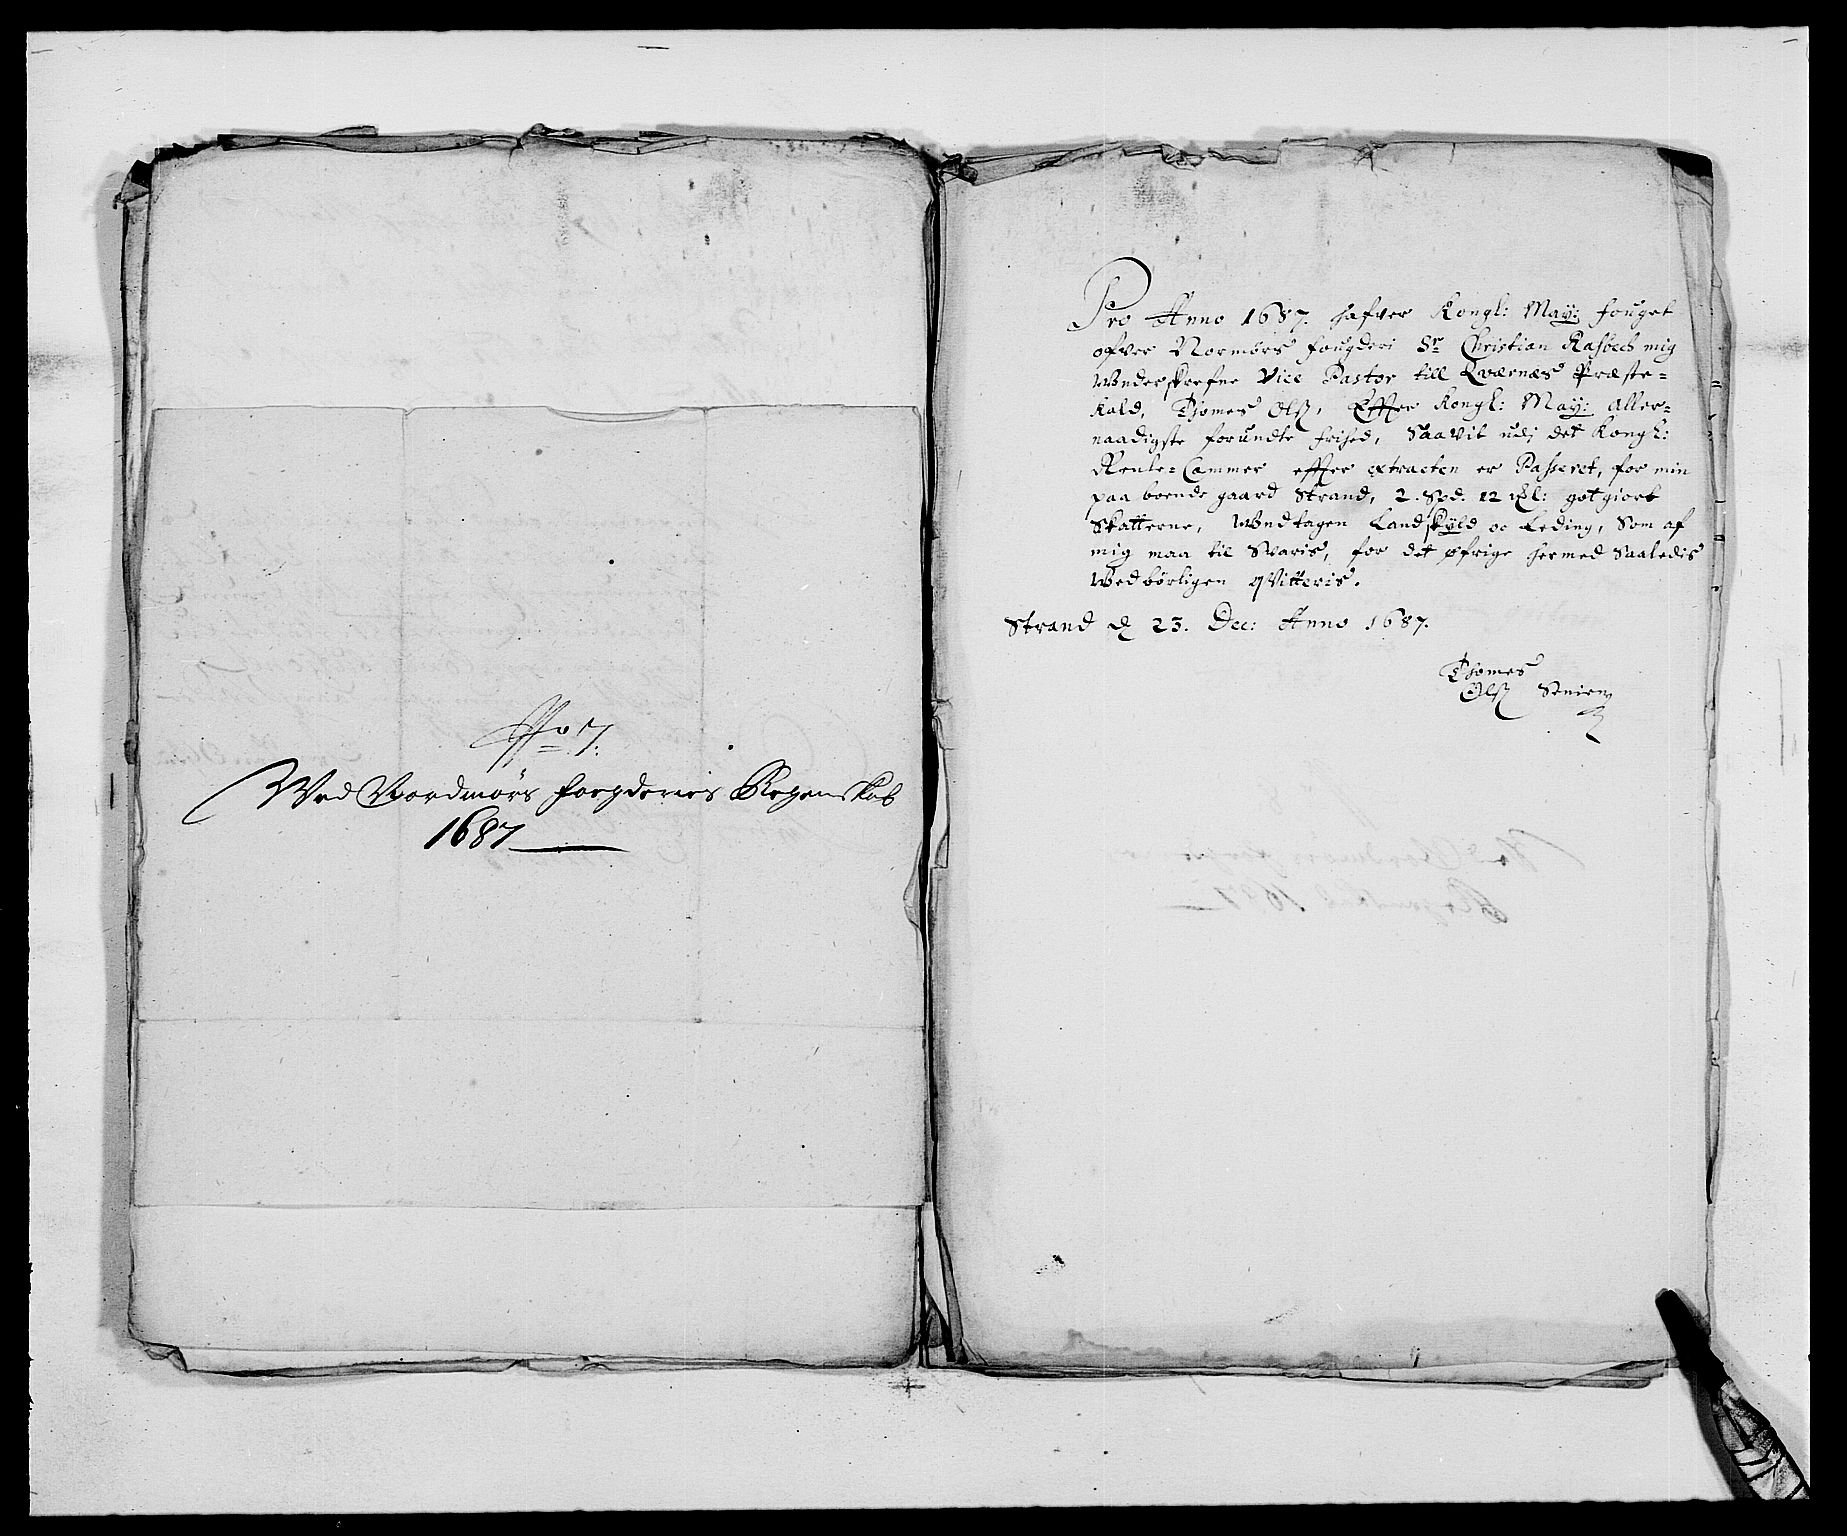 No 7.
Wed Nordmørs fougderies Regenskab
1687
Pro Anno 1687. hafver Kongl: May: fouget
ofver Normørs fougderi Sr Christian Rasbech mig
Underskrefne Vice Pastor till Qværnæs Præste-
kald, Thomes Olß, Effter Kongl: May: Aller-
naadigste forundte frihed, Saavit udj det Kongl:
Rente-Cammer effter extracten er Passeret, for min
paa boende gaard Strand, 2. Spd. 12 ml: gotgiort
Skatterne, Undtagen Landskyld oc Leding, Som af
mig maa til Svaris, for det øfrige hermed Saaledis
Vedbørligen qvitteris.
Strand d 23. Dec: Anno 1687.
Thomes
Olß